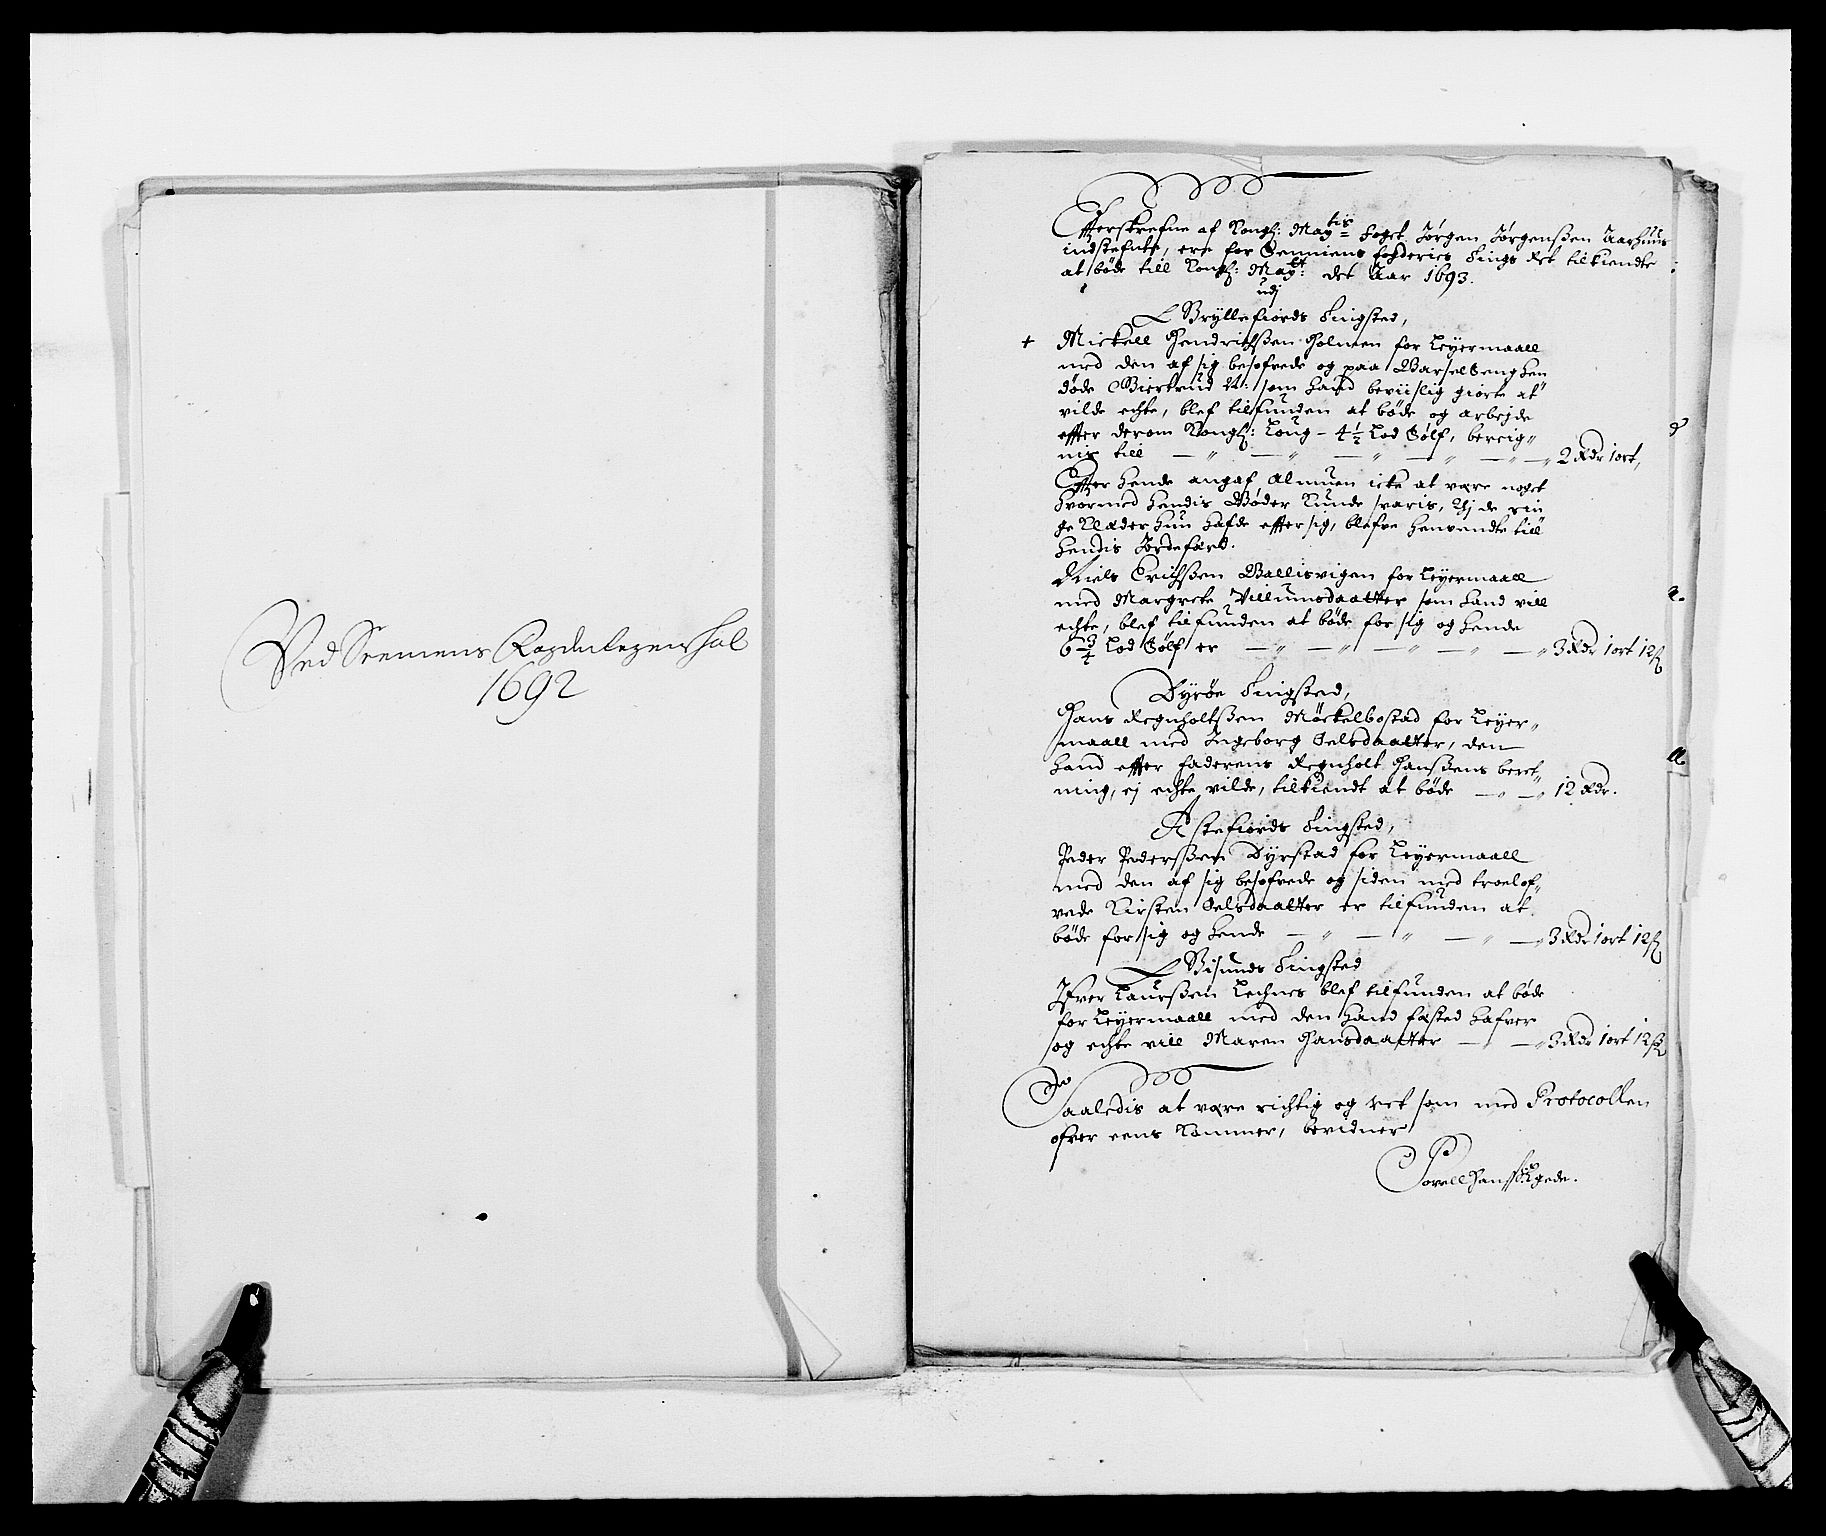 Ved Senniens
1692
Efterskrefne af Kongl: Maytis Foget Jørgen Jørgenssen Aarhuus
indstefnte, ere for Senniens Fogderies Tings Ret tilkiendte
at bøde till Kongl: Maytt: det Aar 1693.
udj
Bryllefiords Tingsted,
+ Mickell Hendrichssen Holmen for Leyermaall
med den af sig besofrede og paa Barsel Senghen
døde Giertrud N: som hand beviislig giorte at
vilde echte, blef tilfunden at bøde og arbejde
effter derom Kongl: Loug - 4 1/2 Lod Sølf, bereig„
nis till 2 Rdr 1ort,
Effter hende angaf Almuen icke at være noget
hvormed hendis Bøder kunde svaris, thj de rin
ge Klæder hun hafde effter sig, blefve henvendte till
hendis Jordefærd.
Niels Erichssen Ballisvigen for Leyermaall
med Margrete Villumsdaatter som hand vill
echte, blef tilfunden at bøde for sig og hende
6 3/4 Lod Sølf er 3 Rdr 1ort 12 s
Dyrøe Tingsted,
Hans Regnholtssen Møckelbostad for Leyer„
maall med Ingeborg Oelsdaatter, den
hand effter faderens Regnholt Hanssens beret„
ning, ej echte vilde, tilkiendt at bøde 12 Rdr.
Astefiords Tingsted,
Peder Pederssen Dyrstad for Leyermaall
med den af sig besofrede og siden med troelof„
vede Kirsten Oelsdaatter er tilfunden at
bøde for sig og hende 3 Rdr 1ort 12 s
Gisunds Tingsted
Ifver Laurssen Lechnes blef tilfunden at bøde
for Leyermaall med den hand fæsted hafver
og echte vill Maren Hansdaatter 3 Rdr 1ort 12 s
Saaledis at være richtig og ret som med Protocollen
ofver eens kommer, bevidner
Povell Hanss: Egede.